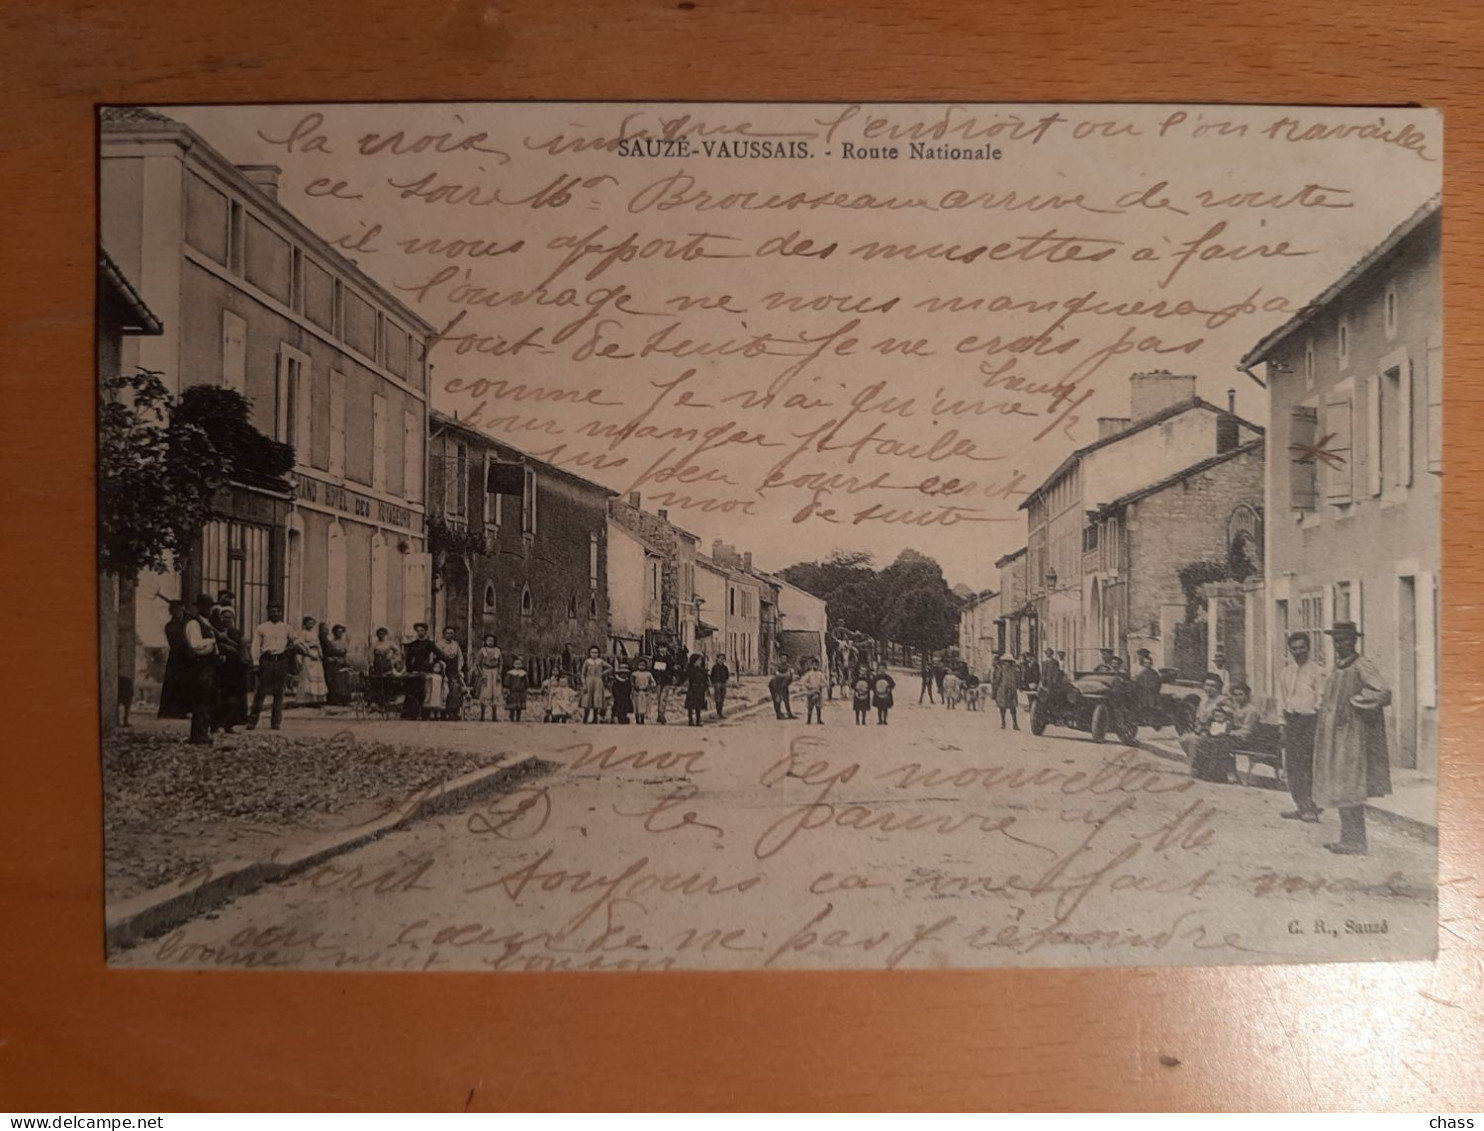 la croix indique l'endroit ou l'on travaille
SAUZÉ-VAUSSAIS. - Route Nationale
ce soir Mr Brousseau arrive de route
il nous apporte des musettes à faire
l'ouvrage ne nous manquera pa
tout de suite Je ne crois pas
comme Je n'ai qu'une heure 1/2
pour manger Je taille
peu court ecrit
moi de suite
GRAND HOTEL DES VOYAGEURS
moi des nouvelles
D. le pauvre y Me
ecrit toujours ça me fait mal
au cœur de ne pas y répondre
bonne nuit bonsoir
C. R., Sauzé
chass